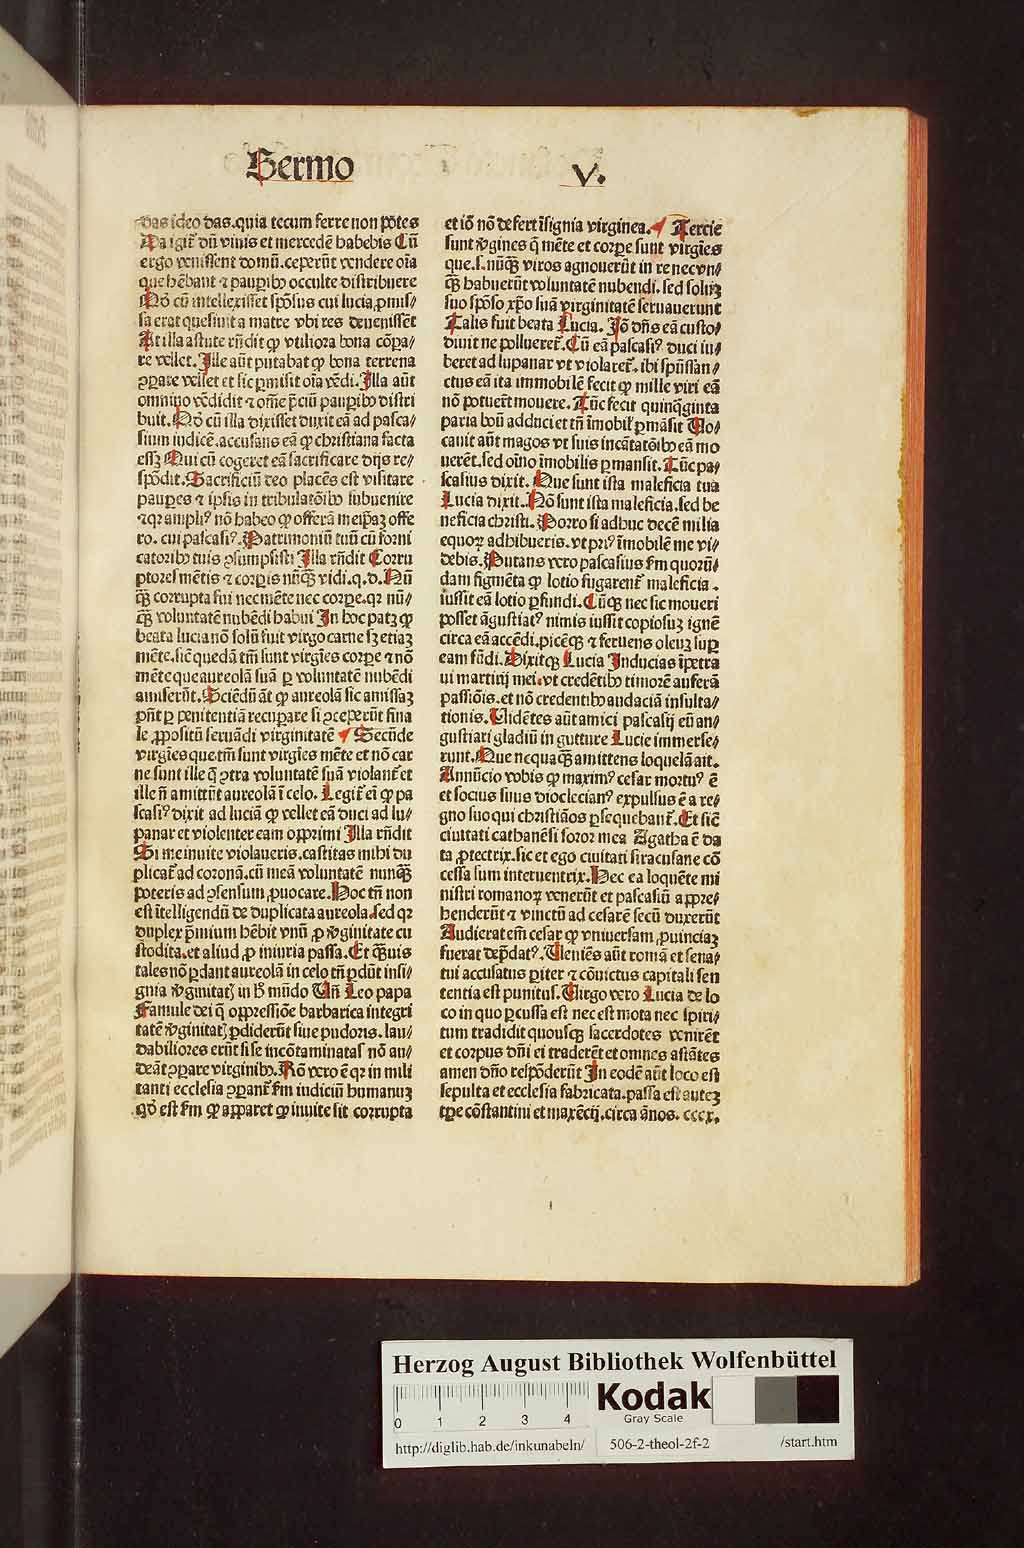 Sermo V.
das ideo das. quia tecum ferre non pōtes
Da igit᷑ dū viuis et mercedē habebis Cū
ergo venissent domū. ceperūt vendere oīa
que hēbant ⁊ paupīb᷒ occulte distribuere
Nō cū intellexisset spōsus cui lucia ꝓmis⸗
sa erat quesiuit a matre vbi res deuenissēt
At illa astute rn̄dit ꝙ vtiliora bona cōpa⸗
re vellet. Ille aūt putabat ꝙ bona terrena
ꝯparare vellet et sic ꝑmisit oīa vēdi. Illa aūt
omnino vēdidit ⁊ om̄e p̄ciū paupīb᷒ distri
buit. Nō cū illa dixisset duxit eā ad pasca⸗
sium iudicē. accusans eā ꝙ christiana facta
essꝫ Qui cū cogeret eā sacrificare dijs re⸗
spōdit. Sacrificiū deo placēs est visitare
pauꝑes ⁊ ipsis in tribulatōib᷒ subuenire
⁊ qꝛ ampli᷒ nō habeo ꝙ offerā meipaꝫ offe
ro. cui pascasi᷒. Patrimoniū tuū cū forni
catorib᷒ tuis ꝯsumpsisti Illa rn̄dit Corru
ptores mētis ⁊ corꝑis nūqͣꝫ vidi. q. d. Nū
qͣꝫ corrupta fui nec mēte nec corpe. qꝛ nū⸗
qͣꝫ voluntatē nubēdi habui In hoc patꝫ ꝙ
beata lucia nō solū fuit virgo carne sꝫ etiaꝫ
mēte. sic̄ quedā tm̄ sunt virgīes corpe ⁊ nō
mēte que aureolā suā ꝑ voluntatē nubēdi
amiserūt. Sciēdū āt ꝙ aureolā sic amissaꝫ
pn̄t ꝑ penitentiā recuꝑare si ꝯceperūt fina
le ꝓpositū seruādi virginitatē Secūde
virgīes que tm̄ sunt virgīes mēte et nō car
ne sunt ille q̄ ꝯtra voluntatē suā violant᷑ et
ille n̄ amittūt aureolā ī celo. Legit᷑ eī ꝙ pa
scasi᷒ dixit ad luciā ꝙ vellet eā duci ad lu⸗
panar et violenter eam opprimi Illa rn̄dit
Si me inuite violaueris. castitas mihi du
plicat᷑ ad coronā. cū meā voluntatē nunqͣꝫ
poteris ad ꝯsensum ꝓuocare. Hoc tn̄ non
est ītelligendū de duplicata aureola. sed qꝛ
duplex p̄mium hēbit vnū ꝓ v̾ginitate cu
stodita. et aliud ꝓ iniuria passa. Et qͣꝫuis
tales nō ꝑdant aureolā in celo tn̄ ꝑdūt insi⸗
gnia v̾ginitatꝭ in h̾ mūdo Vn̄ Leo papa
Famule dei q̄ oppressiōe barbarica integri
tatē v̾ginitatꝭ ꝑdiderūt siue pudoris. lau⸗
dabiliores erūt si se incōtaminatas nō au⸗
deāt ꝯparare virginib᷒. Rō vero ē qꝛ in mili
tanti ecclesia ꝯparant᷑ fm iudiciū humanuꝫ
qd̄ est fm ꝙ apparet ꝙ inuite sit corrupta
et iō nō defert īsignia virginea. Tercie
sunt v̾gines q̄ mēte et corpe sunt virgīes
que. s. nūqͣꝫ viros agnouerūt in re nec vn⸗
qͣꝫ habuerūt voluntatē nubendi. sed soluꝫ
suo spōso xp̄o suā virginitatē seruauerunt
Talis fuit beata Lucia. Iō dn̄s eā custo⸗
diuit ne pollueret᷑. Cū eā pascasi᷒ duci iu⸗
beret ad lupanar vt violaret᷑. ibi spūssan⸗
ctus eā ita immobilē fecit ꝙ mille viri eā
nō potuer̄t mouere. Tūc fecit quinq̄ginta
paria boū adduci et tn̄ īmobil᷑ ꝑmāsit Uo⸗
cauit aūt magos vt suis incātatōib᷒ eā mo
uerēt. sed oīno īmobilis ꝑmansit. Tūc pa⸗
scasius dixit. Que sunt ista maleficia tua
Lucia dixit. Nō sunt ista maleficia. sed be
neficia christi. Porro si adhuc decē milia
equoꝝ adhibueris. vt pri᷒ īmobilē me vi⸗
debis. Putans vero pascasius fm quorū⸗
dam figmēta ꝙ lotio fugarent᷑ maleficia.
iussit eā lotio ꝑfundi. Cūqꝫ nec sic moueri
posset āgustiat᷒ nimis iussit copiosuꝫ ignē
circa eā accēdi. picēqꝫ ⁊ feruens oleuꝫ suꝑ
eam fūdi. Dixitqꝫ Lucia Inducias īpetra
ui martirij mei. vt credētib᷒ timorē auferā
passiōis. et nō credentib᷒ audaciā insulta⸗
tionis. Uidētes aūt amici pascasij eū an⸗
gustiari gladiū in gutture Lucie immerse⸗
runt. Que nequaqͣꝫ amittens loquelā ait.
Annūcio vobis ꝙ maxim᷒ cesar mortu᷒ ē
et socius suus dioclecian᷒ expulsus ē a re⸗
gno suo qui christiāos ꝑsequebant᷑. Et sic̄
ciuitati cathanēsi soror mea Agatha ē da
ta ꝓtectrix. sic et ego ciuitati siracusane cō
cessa sum interuentrix. Hec ea loquēte mi
nistri romanoꝝ venerūt et pascasiū appre⸗
henderūt ⁊ vinctū ad cesarē secū duxerūt
Audierat em̄ cesar ꝙ vniuersam ꝓuinciaꝫ
fuerat dep̄dat᷒. Ueniēs aūt romā et sena⸗
tui accusatus ꝑiter ⁊ cōuictus capitali sen
tentia est punitus. Uirgo vero Lucia de lo
co in quo ꝑcussa est nec est mota nec spiri⸗
tum tradidit quousqꝫ sacerdotes venirēt
et corpus dn̄i ei traderēt et omnes astātes
amen dn̄o respōderūt In eodē aūt loco est
sepulta et ecclesia fabricata. passa est auteꝫ
tꝑe cōstantini et maxēcij. circa ānos. cccx.
Herzog August Bibliothek Wolfenbüttel
0 1 2 3 4
Kodak
Gray Scale
http://diglib.hab.de/inkunabeln/ 506-2-theol-2f-2 /start.htm